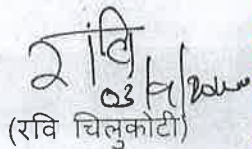 रवि
03/9/2020
(रवि चिलुकोटी)